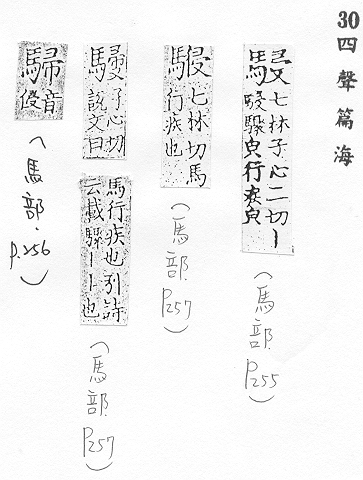 30四聲篇海
七林子心二切丨
駸驟皃行疾皃
(馬部.P255)
七林切馬
行疾也
(馬部.P257)
子心切
說文曰
馬行疾也引詩
云載驟丨丨也
(馬部.P257)
音
(馬部.P.256)